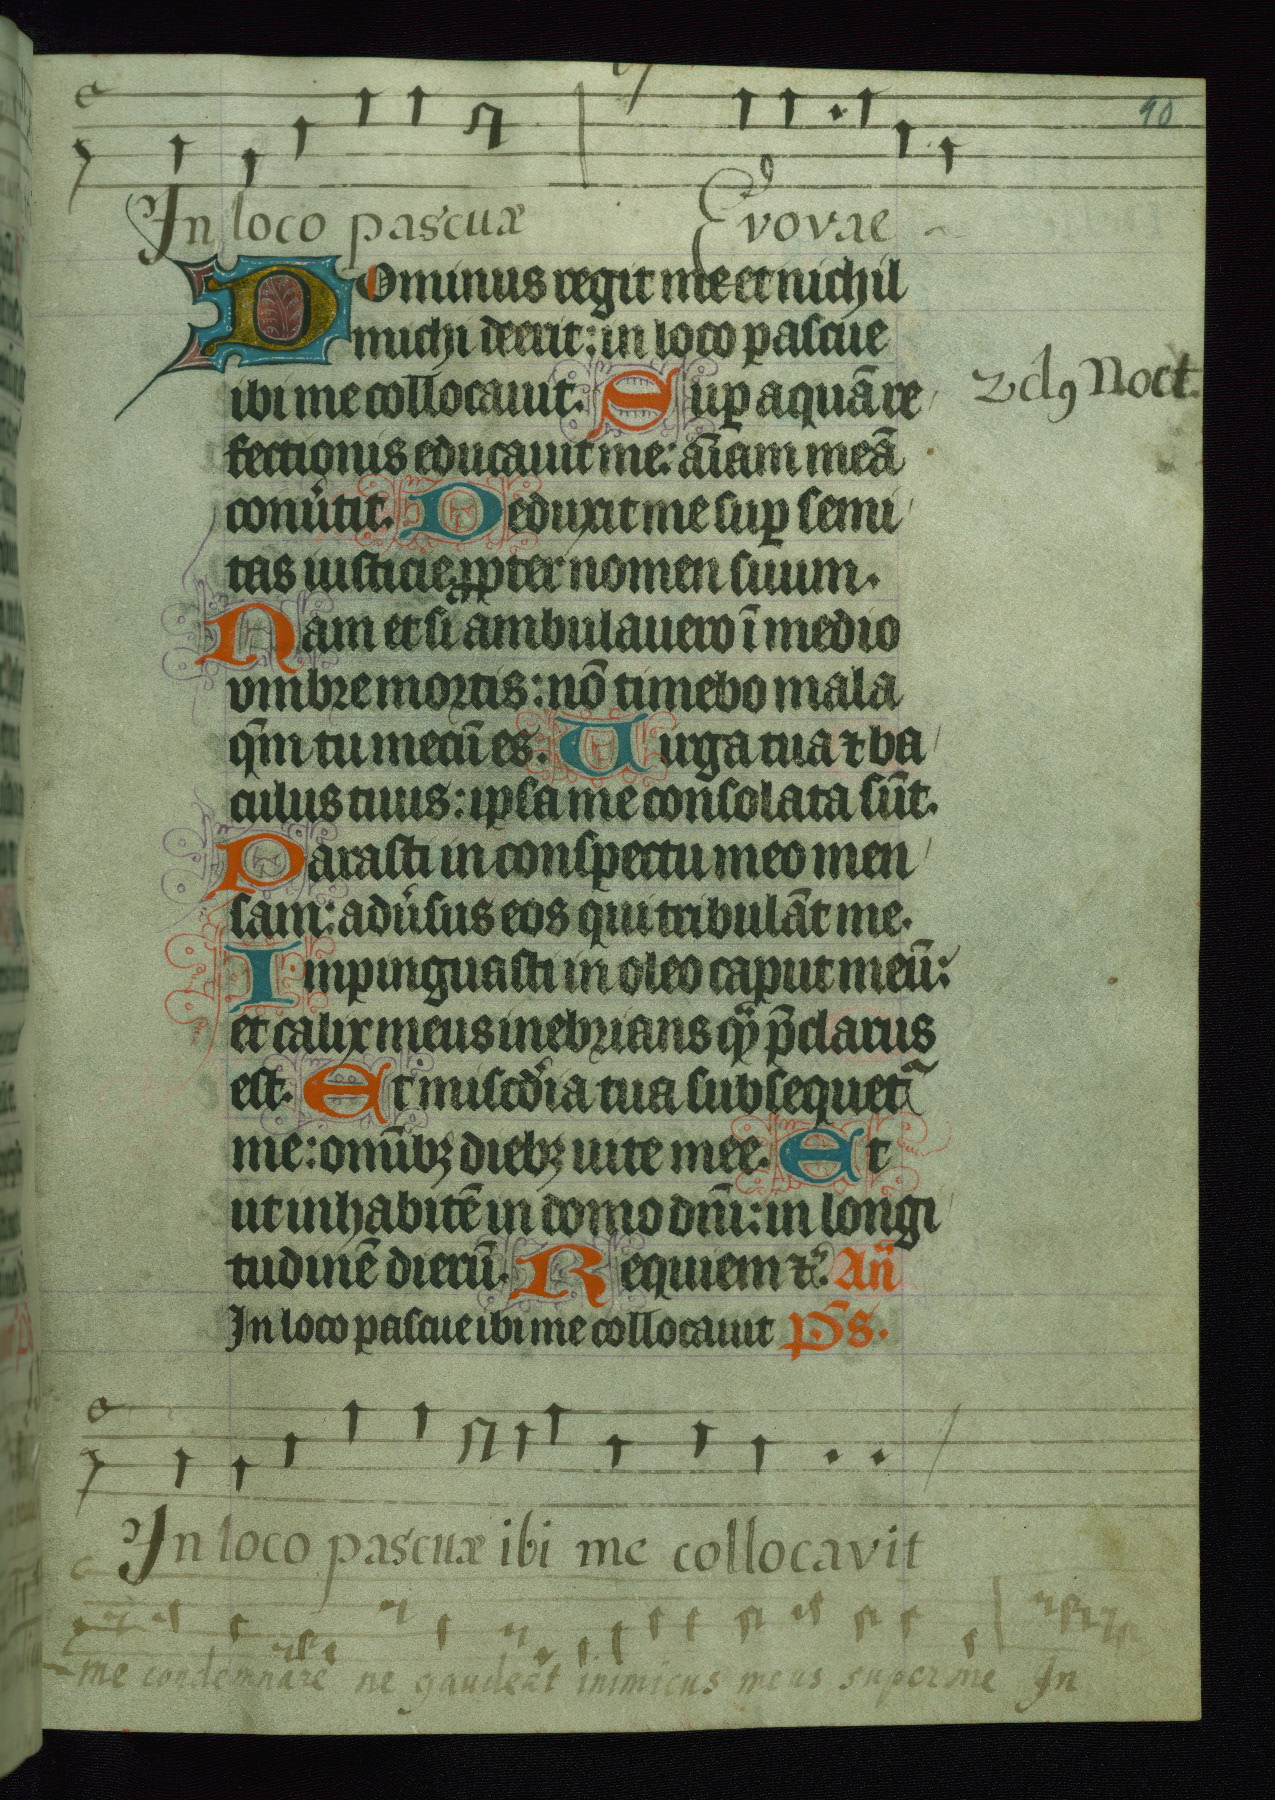 90
In loco pascuæ Evovae
Dominus regit me et nichil
michi deerit: in loco pascue
ibi me collocauit. Sup aquā re
fectionis educauit me: aīam meā
conu̇tit. Deduxit me sup semi
tas iusticie ꝓpter nomen suum.
Nam et si ambulauero ī medio
vmbre mortis: nō timebo mala
qm̄ tu mecū es. Uirga tua ⁊ ba
culus tuus: ipsa me consolata sūt.
Parasti in conspectu meo men
sam: adu̇sus eos qui tribulāt me.
Impinguasti in oleo caput meū:
et calix meus inebrians qͣ p̄clarus
est. Et miscd̓ia tua subsequet᷑
me: omībꝫ diebꝫ uite mee. Et
ut inhabitē in domo dn̄i: in longi
tudinē dierū. Requiem ⁊c̓. An̄
In loco pascue ibi me collocauit p̄s.
2dꝯ Noct.
In loco pascuæ ibi me collocavit
me condemnare ne gaudeat inimicus meus super me In